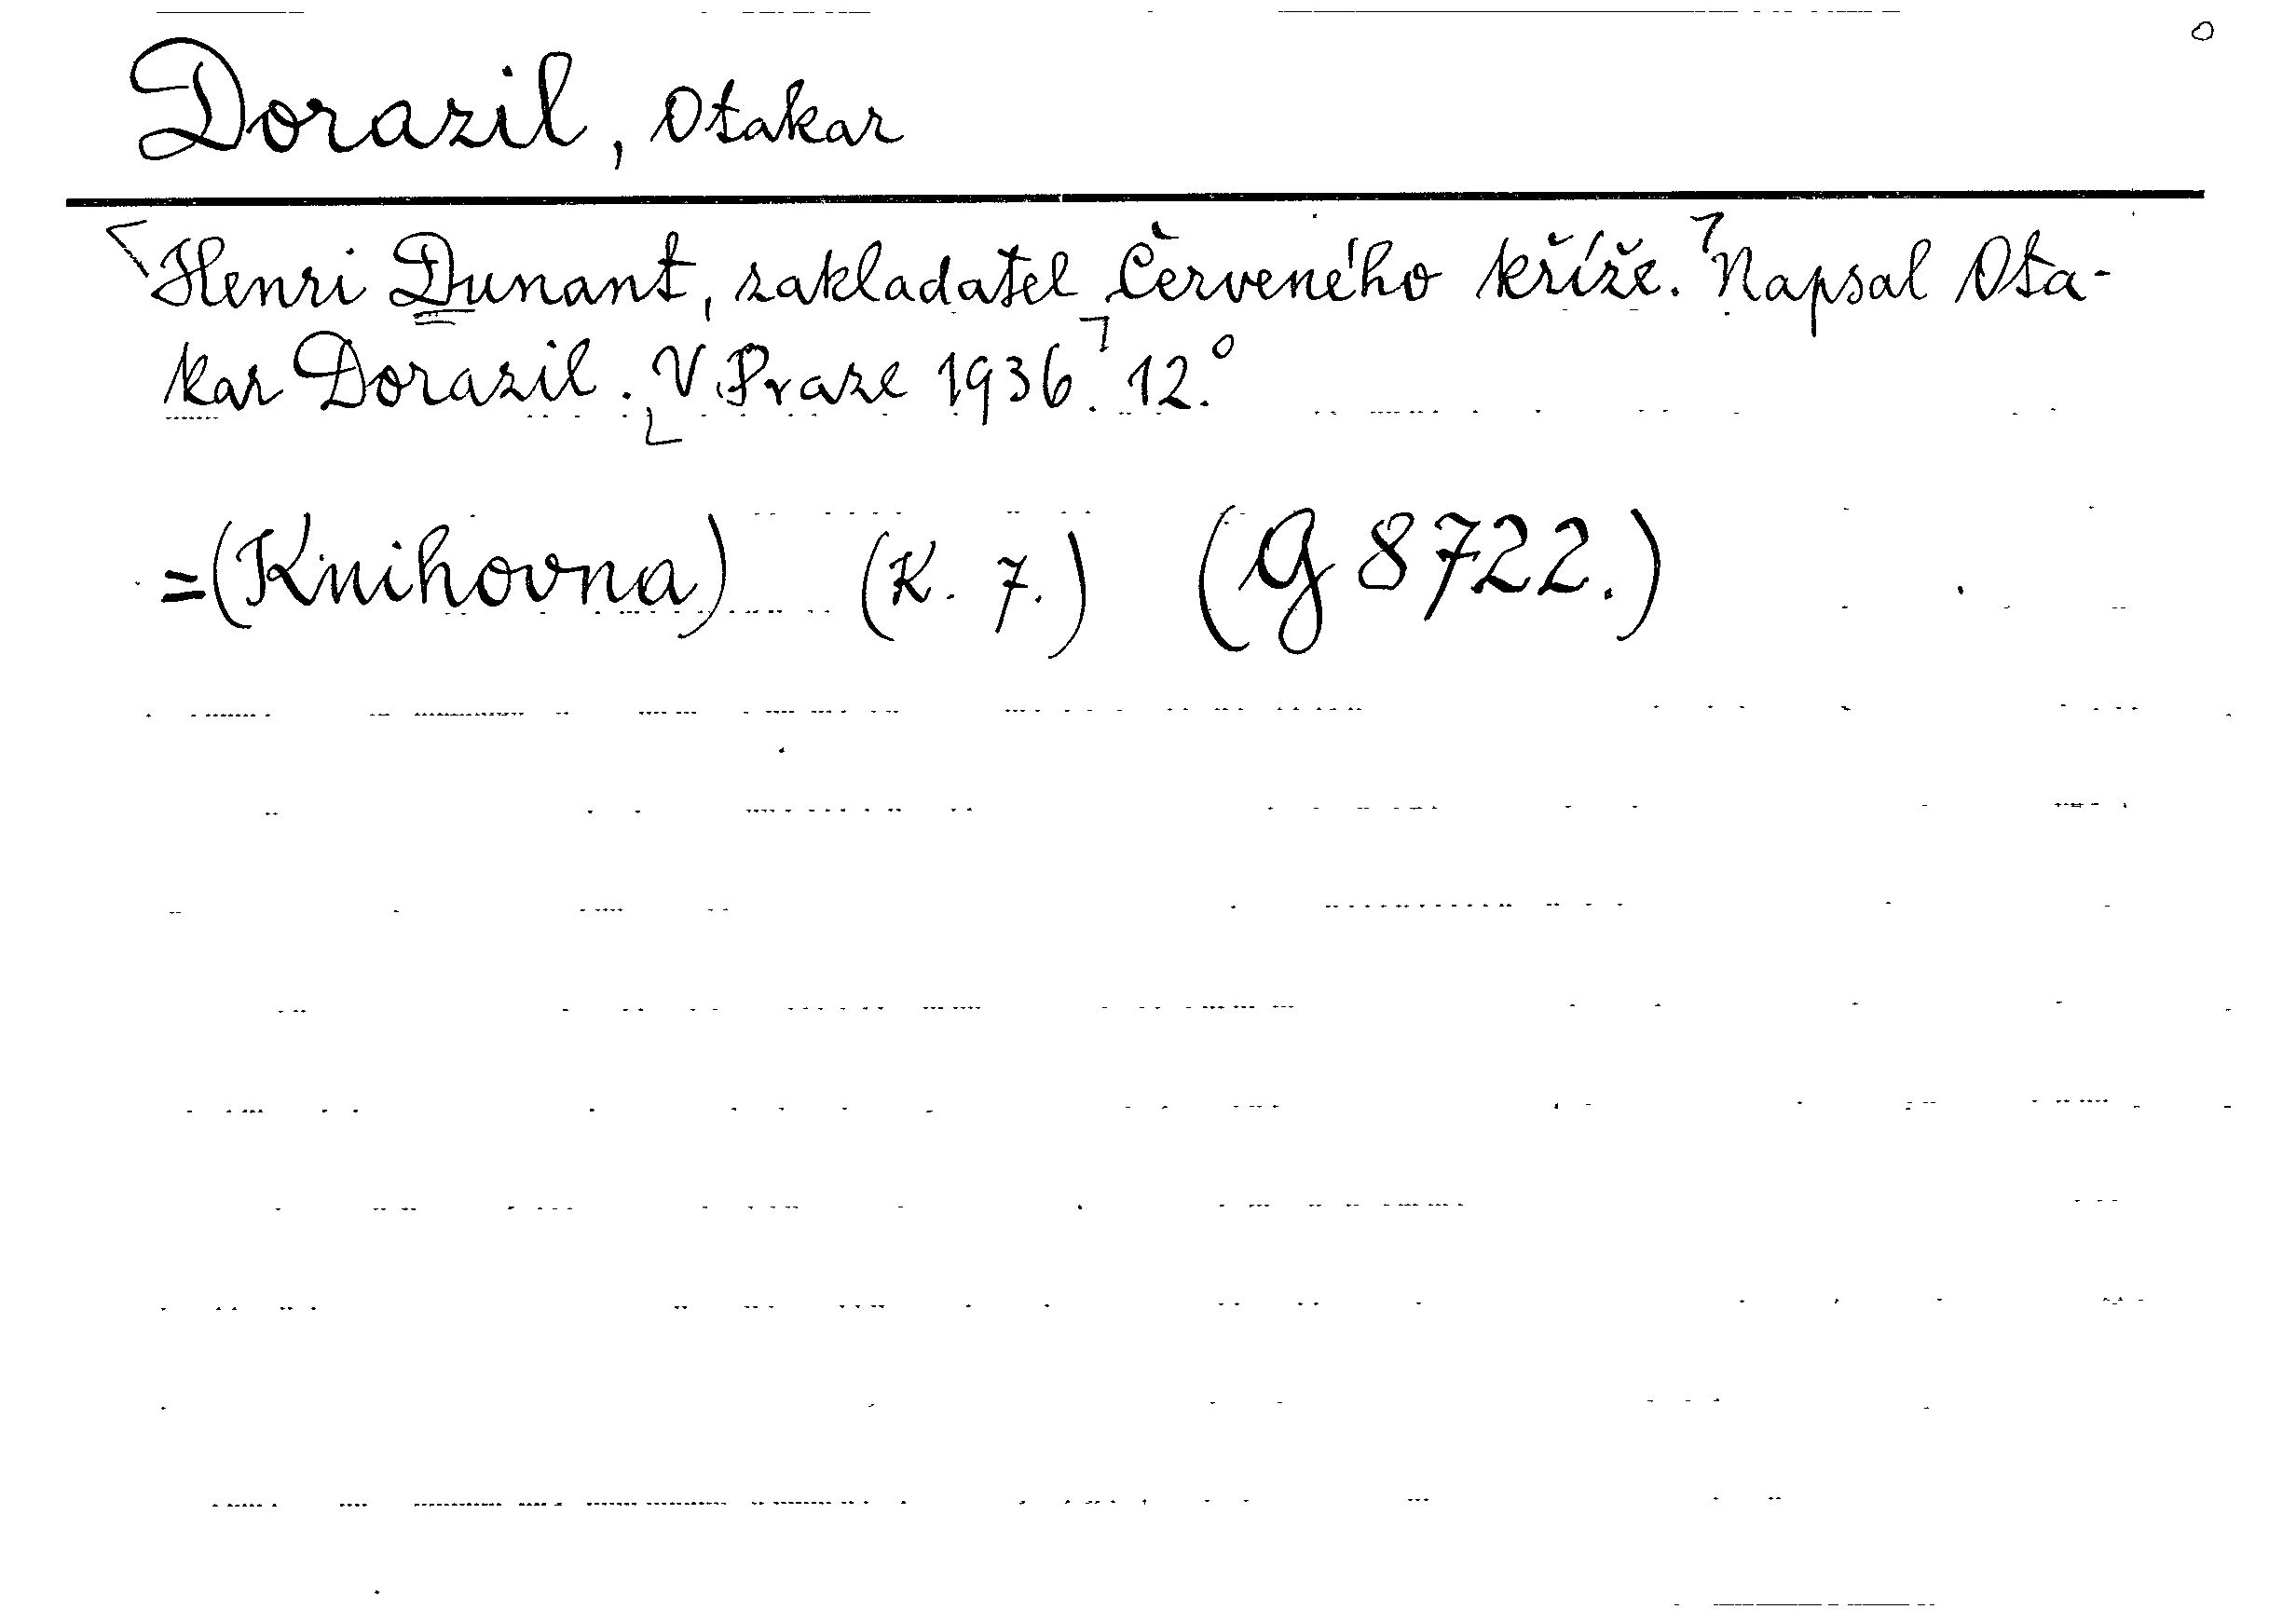 Dorazil, Otakar
Henri Dunant, zakladatel Červeného kříže. Napsal Ota-
kar Dorazil. V Praze 1936. 12.°
=(Knihovna) (K. 7.) (G 8722.)